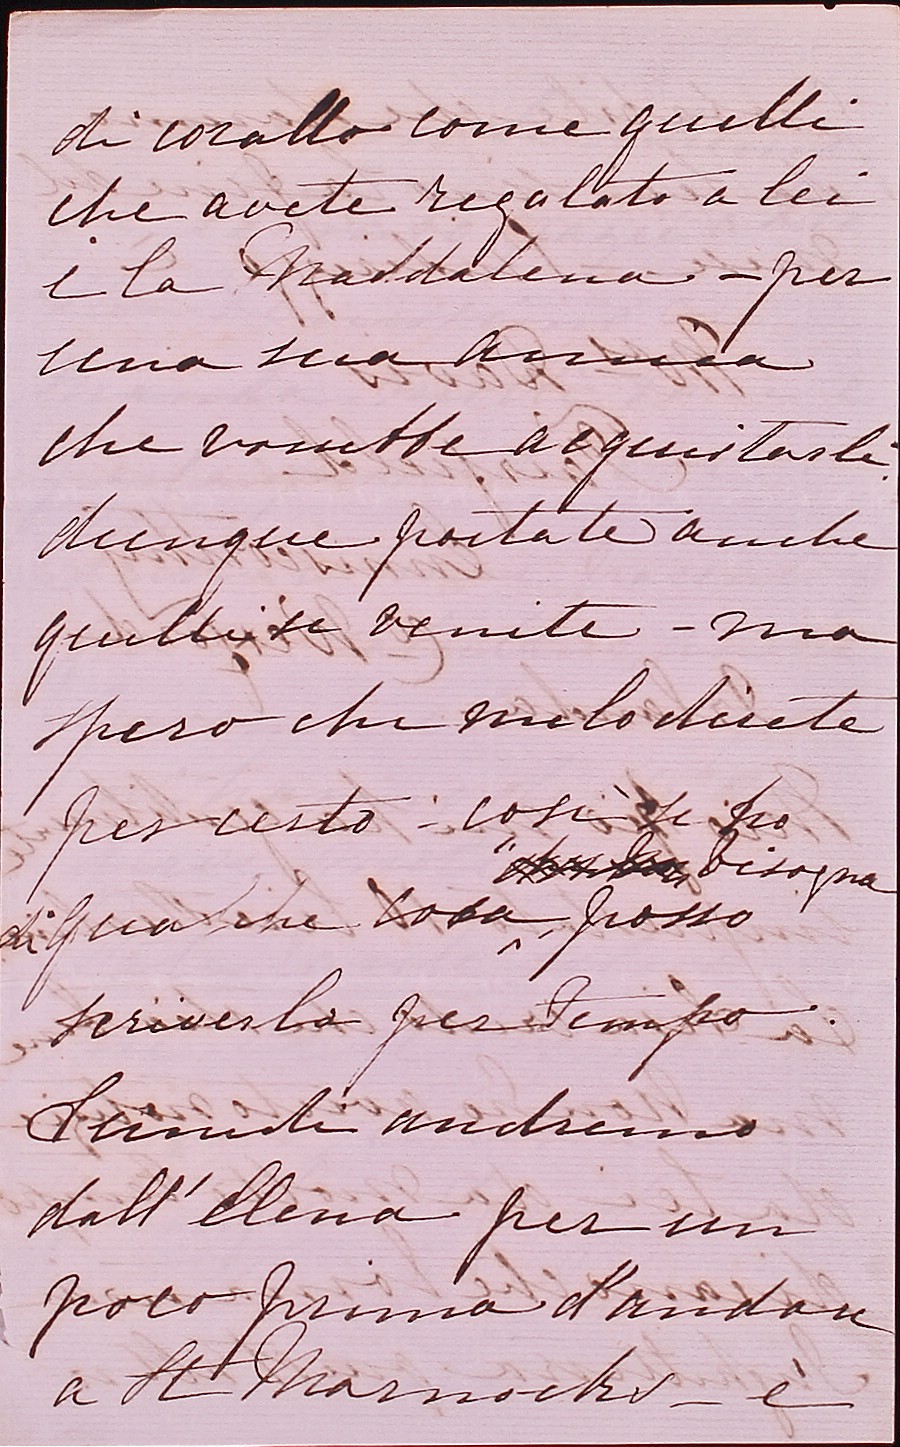 di corallo come quelli
che avete regalato a lei
e la Maddalena - per
una sua amica
che vorrebbe acquistarli.
dunque portate anche
quelli se venite - ma
spero che me lo direte
per certo - così se ho
bisogna
di qualche cosa, posso
scriverlo per tempo.
Lunedì andremo
dall' Elena per un
poco prima d'andare
a St Marnocks - è